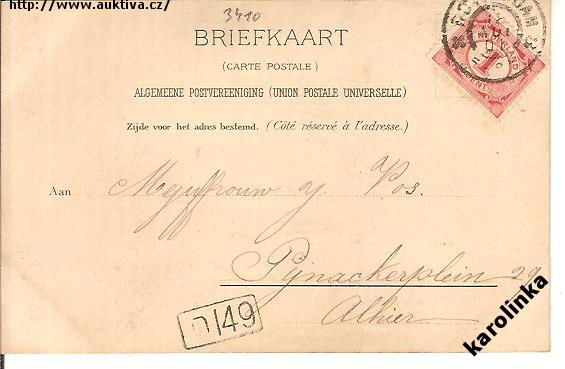 http://www.auktiva.cz/
3410
BRIEFKAART
(CARTE POSTALE)
ALGEMEENE POSTVEREENIGING (UNION POSTALE UNIVERSELLE)
Zijde voor het adres bestemd. (Côté réservé à l'adresse.)
NEDERLAND
1
CENT
Aan Mejuffrouw J. Vos.
Pijnackerplein 29
Alhier
D149
karolinka